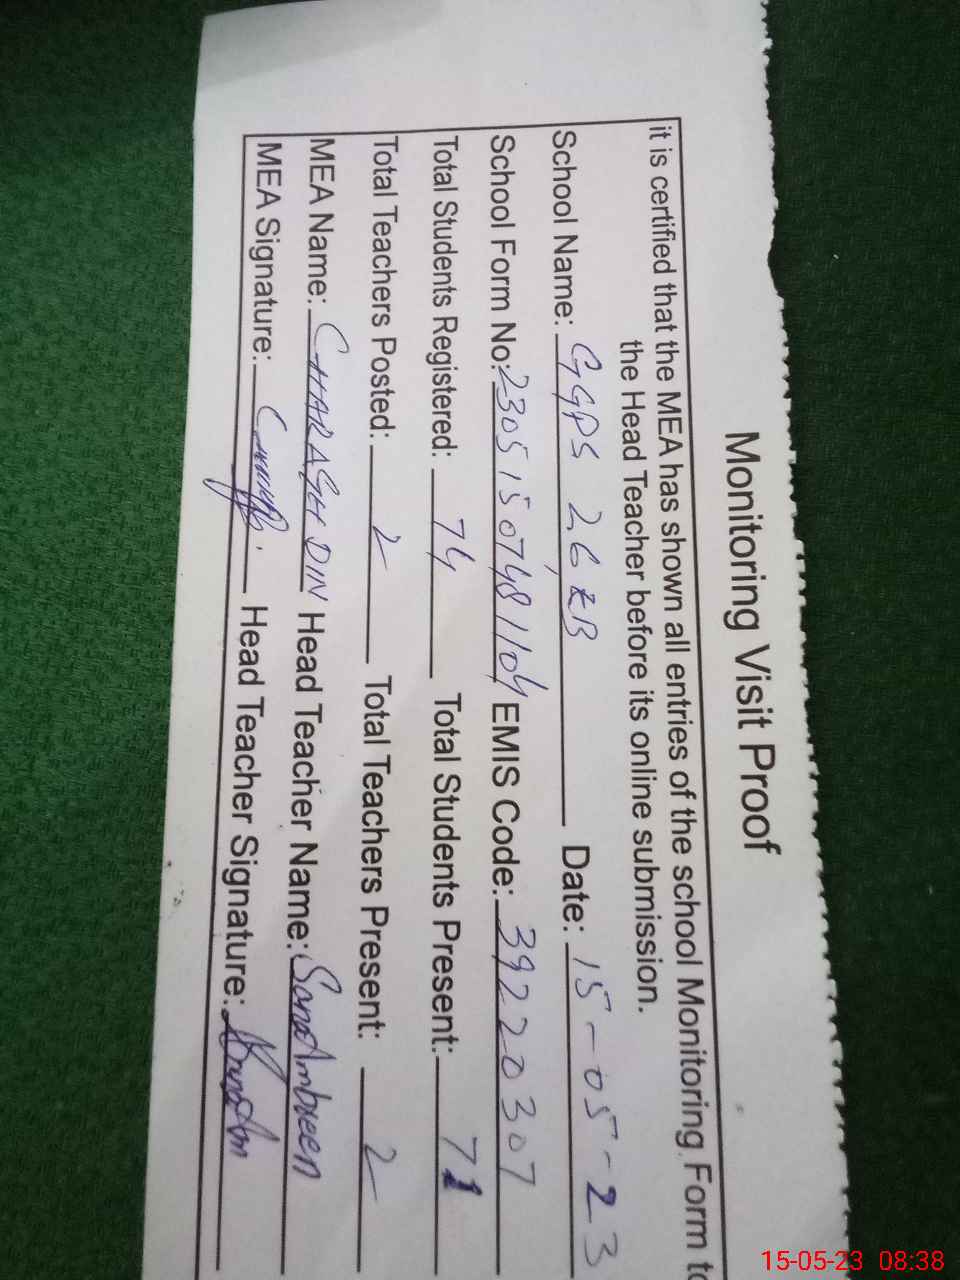 Monitoring Visit Proof
it is certified that the MEA has shown all entries of the school Monitoring Form to
the Head Teacher before its online submission.
School Name: GGPS 26 KB Date: 15-05-23
School Form No: 23051507481104 EMIS Code: 39220307
Total Students Registered: 74 Total Students Present: 71
Total Teachers Posted: 2 Total Teachers Present: 2
MEA Name: CHARAGH DIN Head Teacher Name: Sana Ambreen
MEA Signature: Head Teacher Signature:
15-05-23 08:38